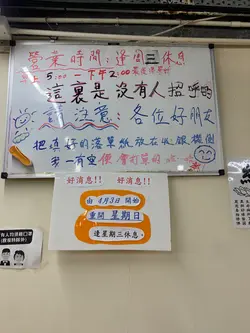 營業時間:逢周三休息
早上5:00一下午2:00
這裏是沒有人招呼的
請注意:各位好朋友
把填好的落單紙放在收銀機側
我一有空便會打單的
好消息!! 好消息!!
由 4月3日 開始
重開 星期日
逢星期三休息。